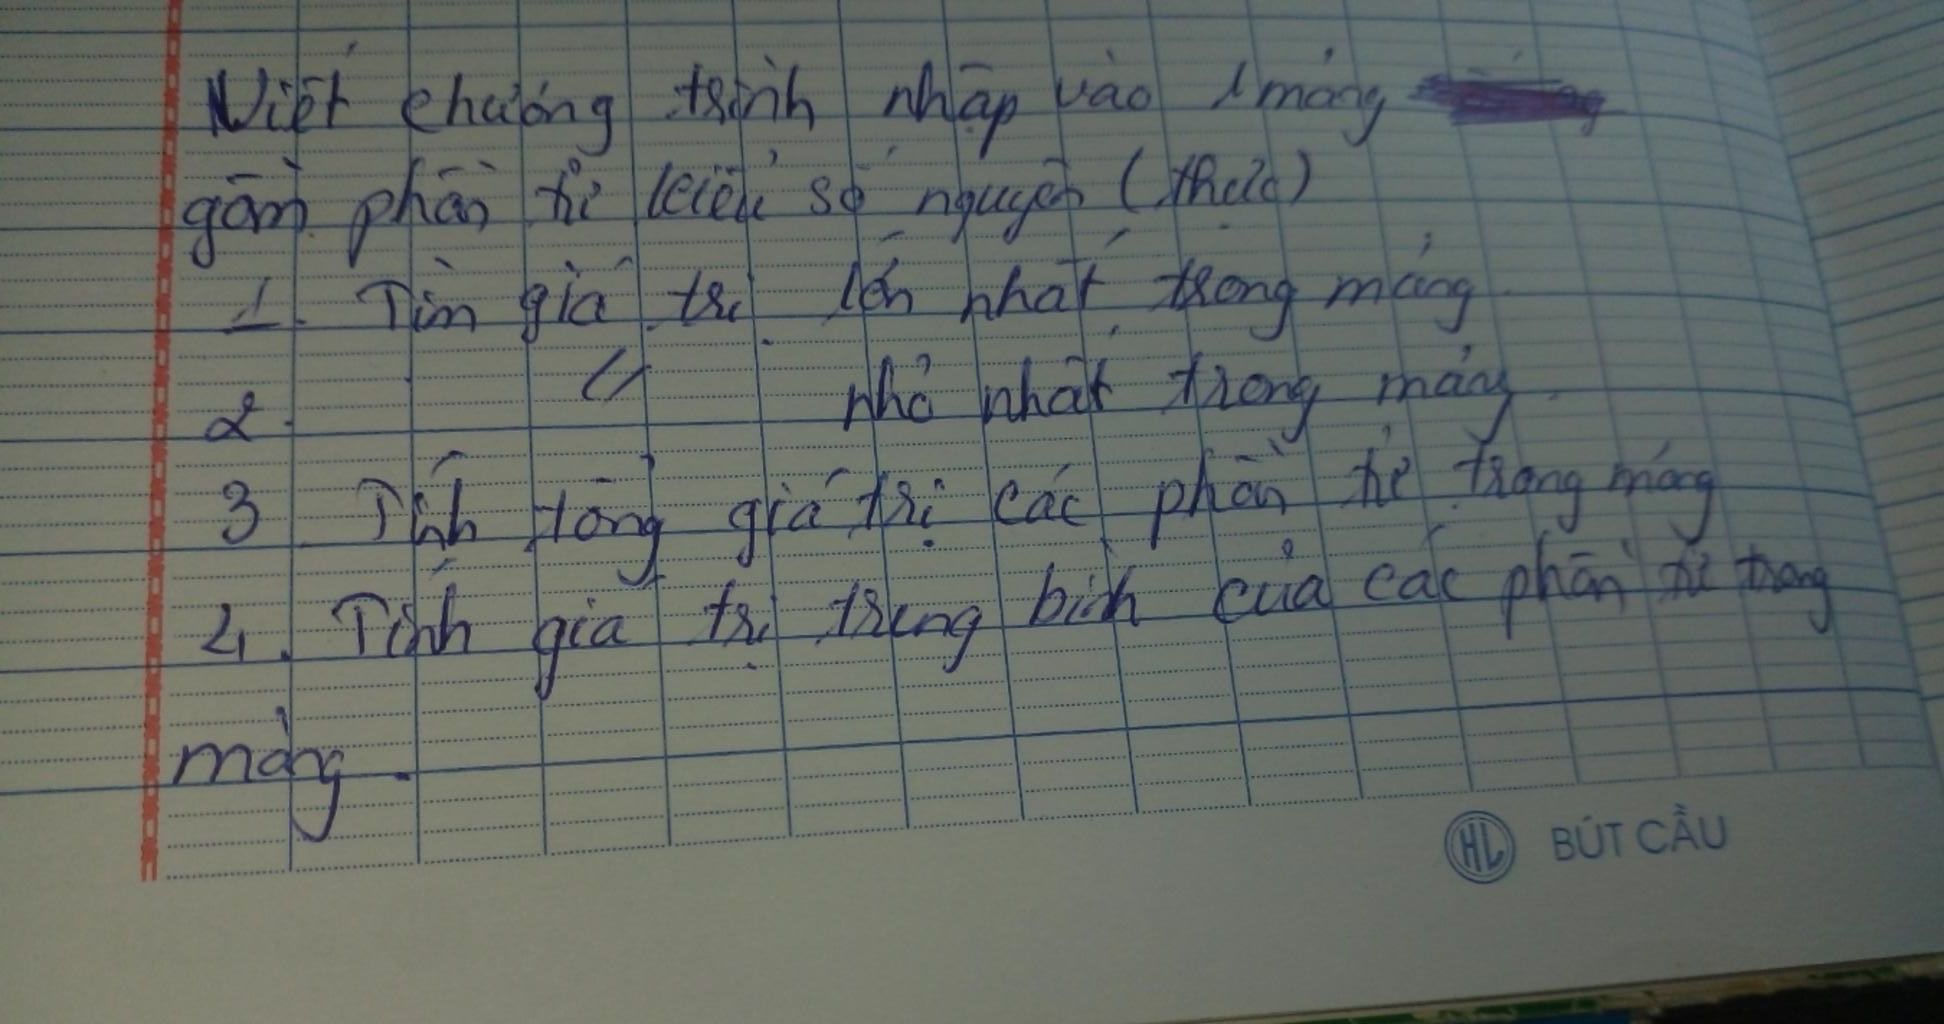 Viết chương trình nhập vào 1 mảng
gồm phần tử kiểu số nguyên (thực)
1. Tìm giá trị lớn nhất trong mảng
2. " nhỏ nhất trong mảng.
3 Tính tổng giá trị các phần tử trong mảng
4. Tính giá trị trung bình của các phần tử trong
mảng.
HL BÚT CẦU